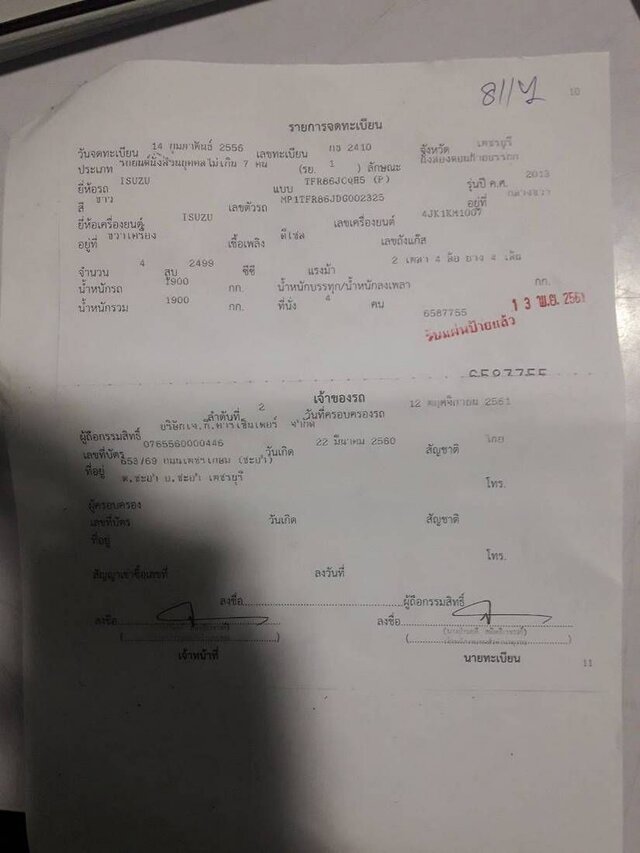 10
รายการจดทะเบียน
วันจดทะเบียน 14 กุมภาพันธ์ 2556 เลขทะเบียน กธ 2410 จังหวัด เพชรบุรี
ประเภท รถยนต์นั่งส่วนบุคคลไม่เกิน 7 คน (รย. 1 ) ลักษณะ นั่งสองตอนท้ายบรรทุก
ยี่ห้อรถ ISUZU แบบ TFR86JCQH5 (P) รุ่นปี ค.ศ. 2013
สี ขาว เลขตัวรถ MP1TFR86JDG002325 อยู่ที่ กลางขวา
ยี่ห้อเครื่องยนต์ ISUZU เลขเครื่องยนต์ 4JK1KM1007
อยู่ที่ ขวาเครื่อง เชื้อเพลิง ดีเซล เลขถังแก๊ส
จำนวน 4 สูบ 2499 ซีซี แรงม้า 2 เพลา 4 ล้อ ยาง 4 เส้น
น้ำหนักรถ 1900 กก. น้ำหนักบรรทุก/น้ำหนักลงเพลา กก.
น้ำหนักรวม 1900 กก. ที่นั่ง 4 คน
6587755 13 พ.ย. 2561
รับแผ่นป้ายแล้ว
6587755
เจ้าของรถ
ลำดับที่ 2 วันที่ครอบครองรถ 12 พฤศจิกายน 2561
ผู้ถือกรรมสิทธิ์ บริษัท จำกัด
เลขที่บัตร 0765560000446 วันเกิด 22 มีนาคม 2560 สัญชาติ ไทย
ที่อยู่ 653/69 ถนนเพชรเกษม (ชะอำ)
ต.ชะอำ อ.ชะอำ เพชรบุรี โทร.
ผู้ครอบครอง
เลขที่บัตร วันเกิด สัญชาติ
ที่อยู่
โทร.
สัญญาเช่าซื้อเลขที่ ลงวันที่
ลงชื่อ ผู้ถือกรรมสิทธิ์
ลงชื่อ ลงชื่อ
เจ้าหน้าที่ นายทะเบียน
11